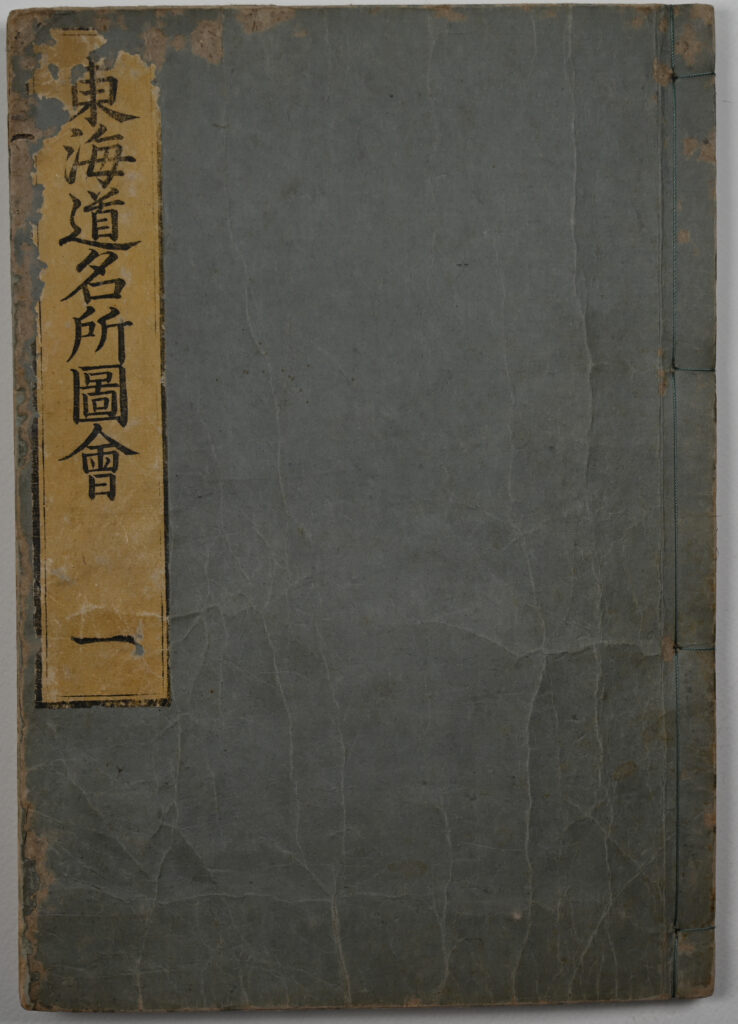 東海道名所圖會
一